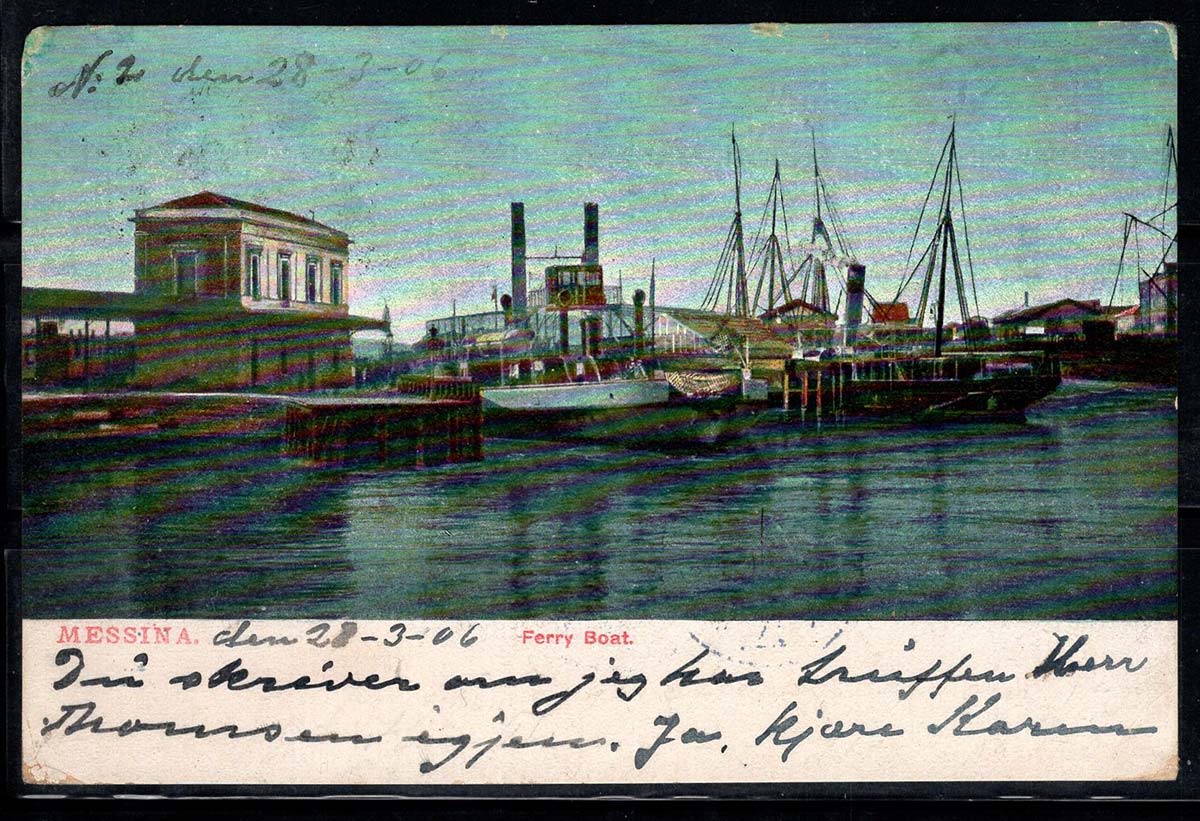 N: 2 den 28-3-06
MESSINA. den 28-3-06 Ferry Boat.
Du skriver om jeg har truffen Herr
Thomsen igjen. Ja, kjære Karen